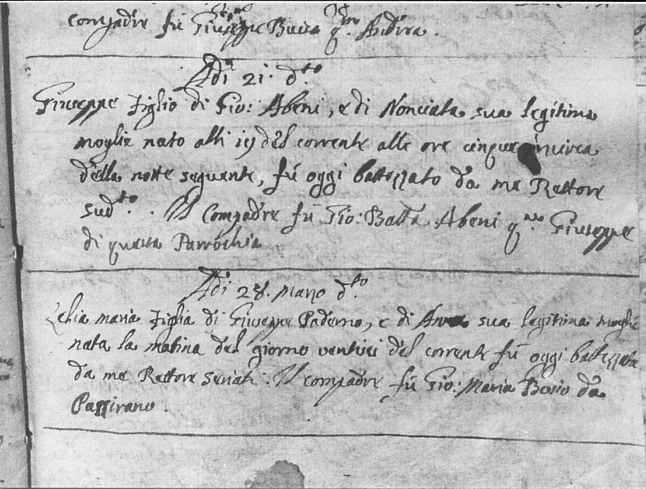 compadre fù Giuseppe q.m Andrea.
Adi 21. d.to
Giuseppe figlio di Gio: Abeni, e di Nonciata sua legitima
moglie nato alli 19 del corrente alle ore cinque incirca
della notte seguente, fù oggi battezzato da me Rettore
sud.to. Il Compadre fù Gio: Batta Abeni q.m Giuseppe
di questa Parrochia
Adi 28. marzo d.to
Lelia maria figlia di Giuseppe Paderno, e di Anna sua legitima moglie
nata la matina del giorno ventisei del corrente fù oggi battezzata
da me Rettore Seriati. Il compadre fù Gio: Maria Bosio da
Passirano.